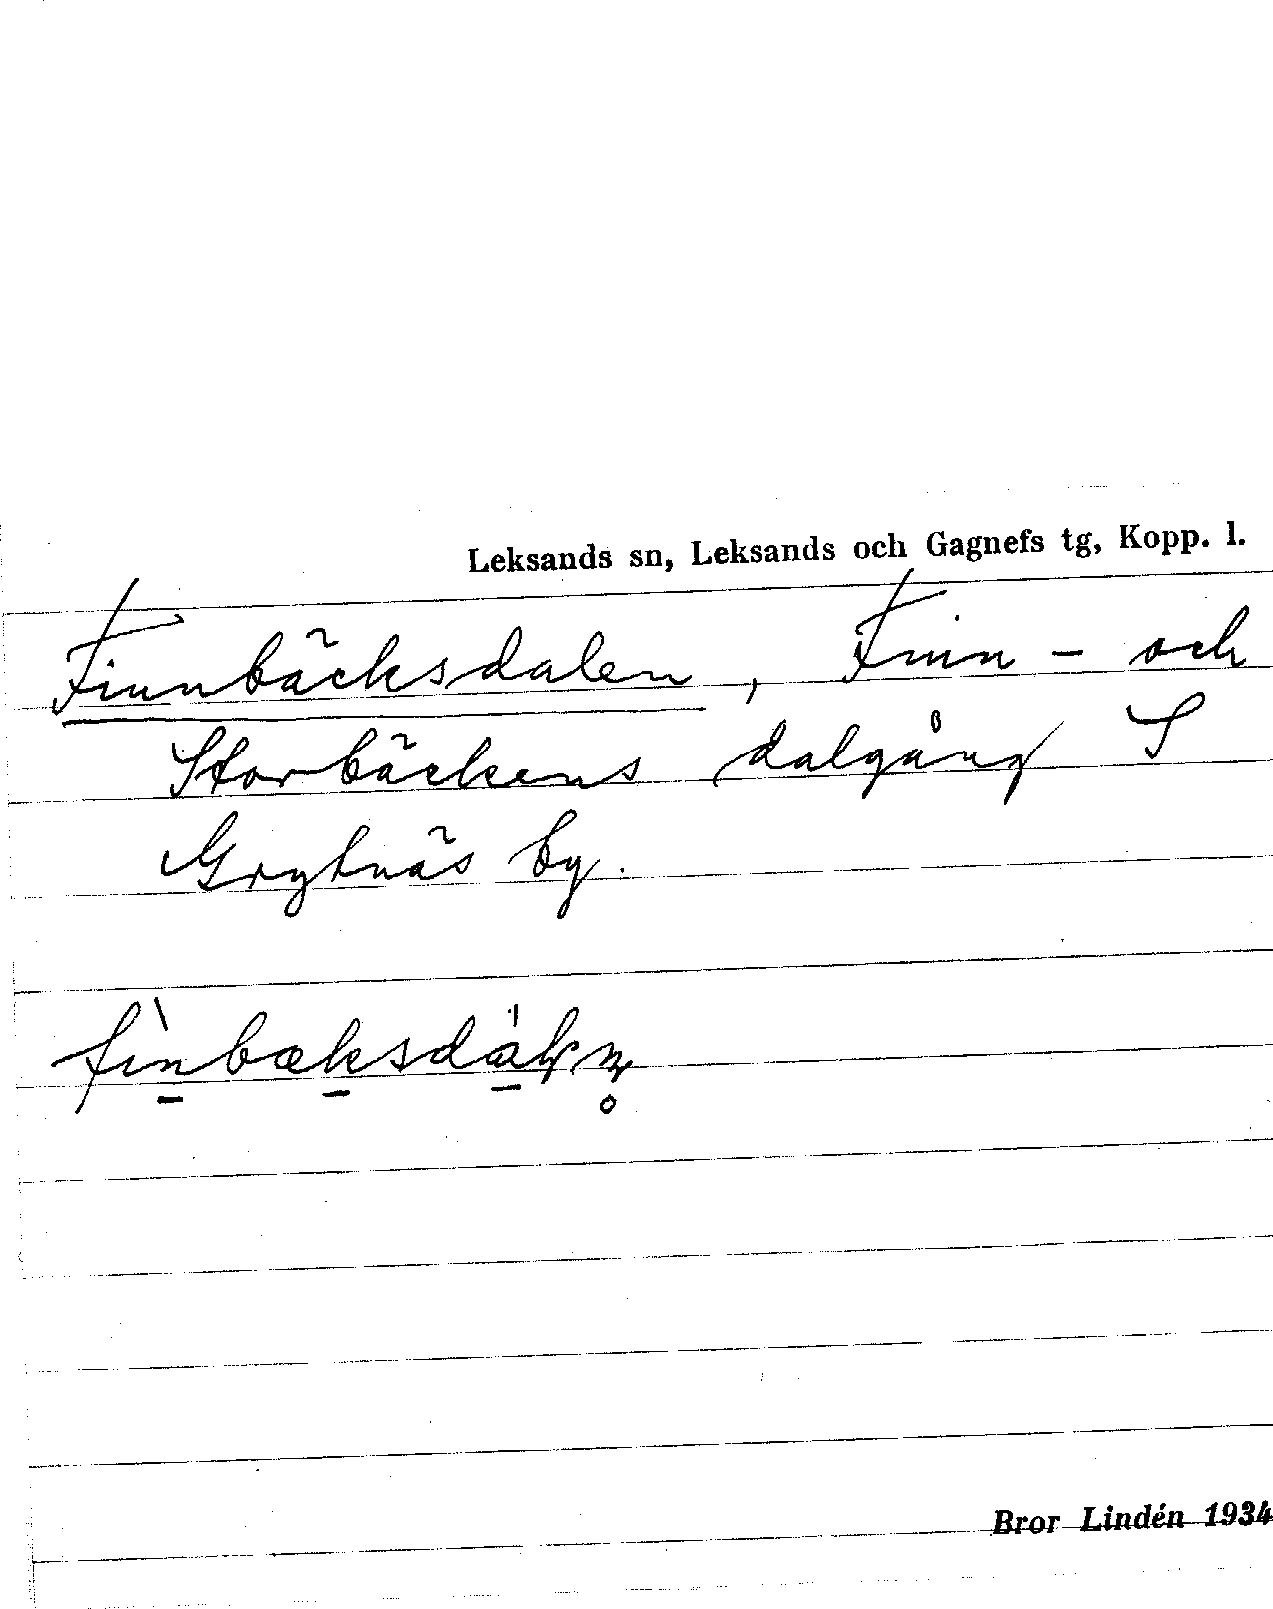 Leksands sn, Leksands och Gagnefs tg, Kopp. l.
Finnbäcksdalen, Finn- och
Storbäckens dalgång S
Grytnäs by.
fìn̲bæk̲sdá̲ɭn̥
Bror Lindén 1934